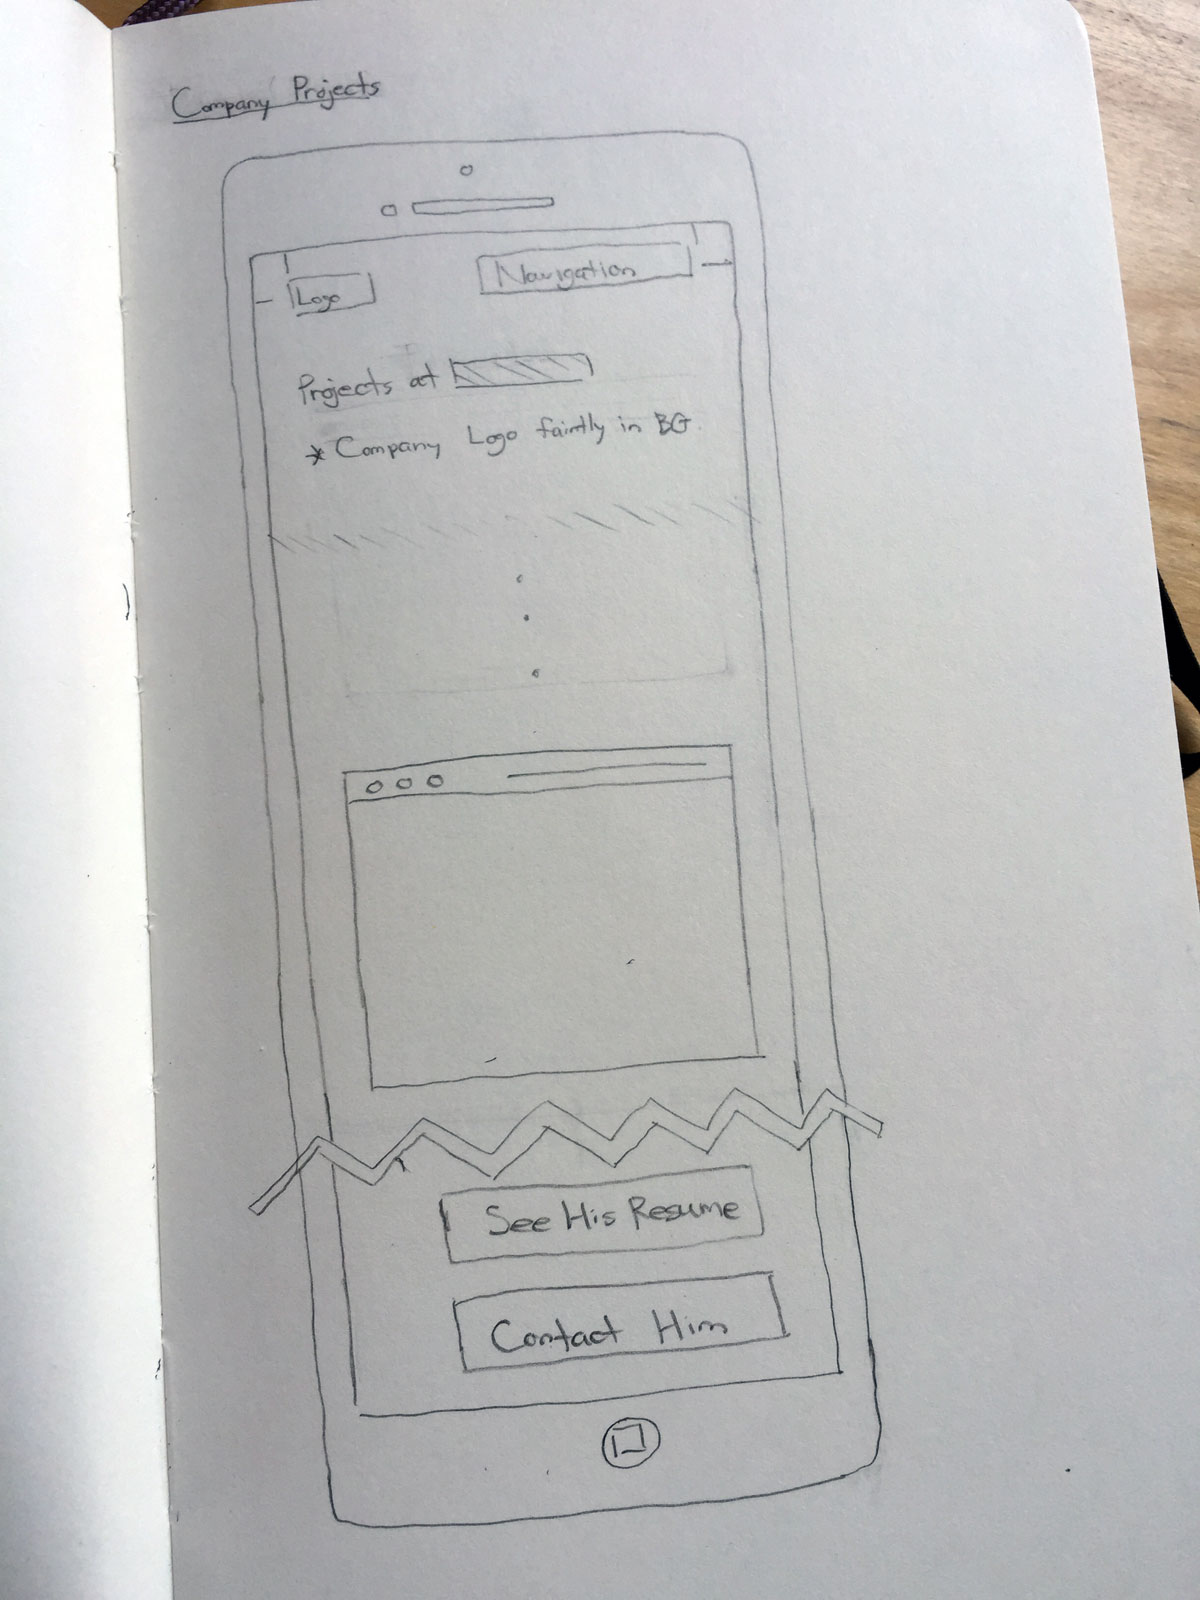 Company Projects
Logo
Navigation
Projects at
* Company Logo faintly in BG
See His Resume
Contact Him